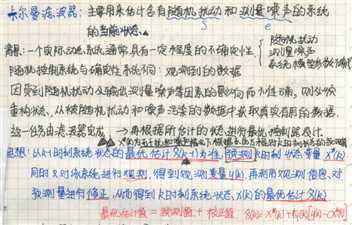 卡尔曼滤波器：主要用来估计含有随机扰动和测量噪声的系统
的当前状态.
背景：一个实际系统通常具有一定程度的不确定性 随机扰动
测量噪声
随机控制系统与确定性系统不同：观测到的数据
因受到随机扰动及输出测量噪声等因素的影响而不准确，则必须
重构状态，从被随机扰动和噪声污染的数据中获取真实有用的数据.
这一任务由滤波器完成 → 再根据所估计的状态进行最优控制器设计.
思想：以k-1时刻系统状态的最优估计x̂(k-1)为准，预测k时刻状态变量
同时又对该系统进行观测，得到观测变量y(k)，再利用观测信息，对
预测量进行修正，从而得到k时刻系统状态x(k)的最优估计x̂(k)
最优估计值 = 预测值 + 校正值